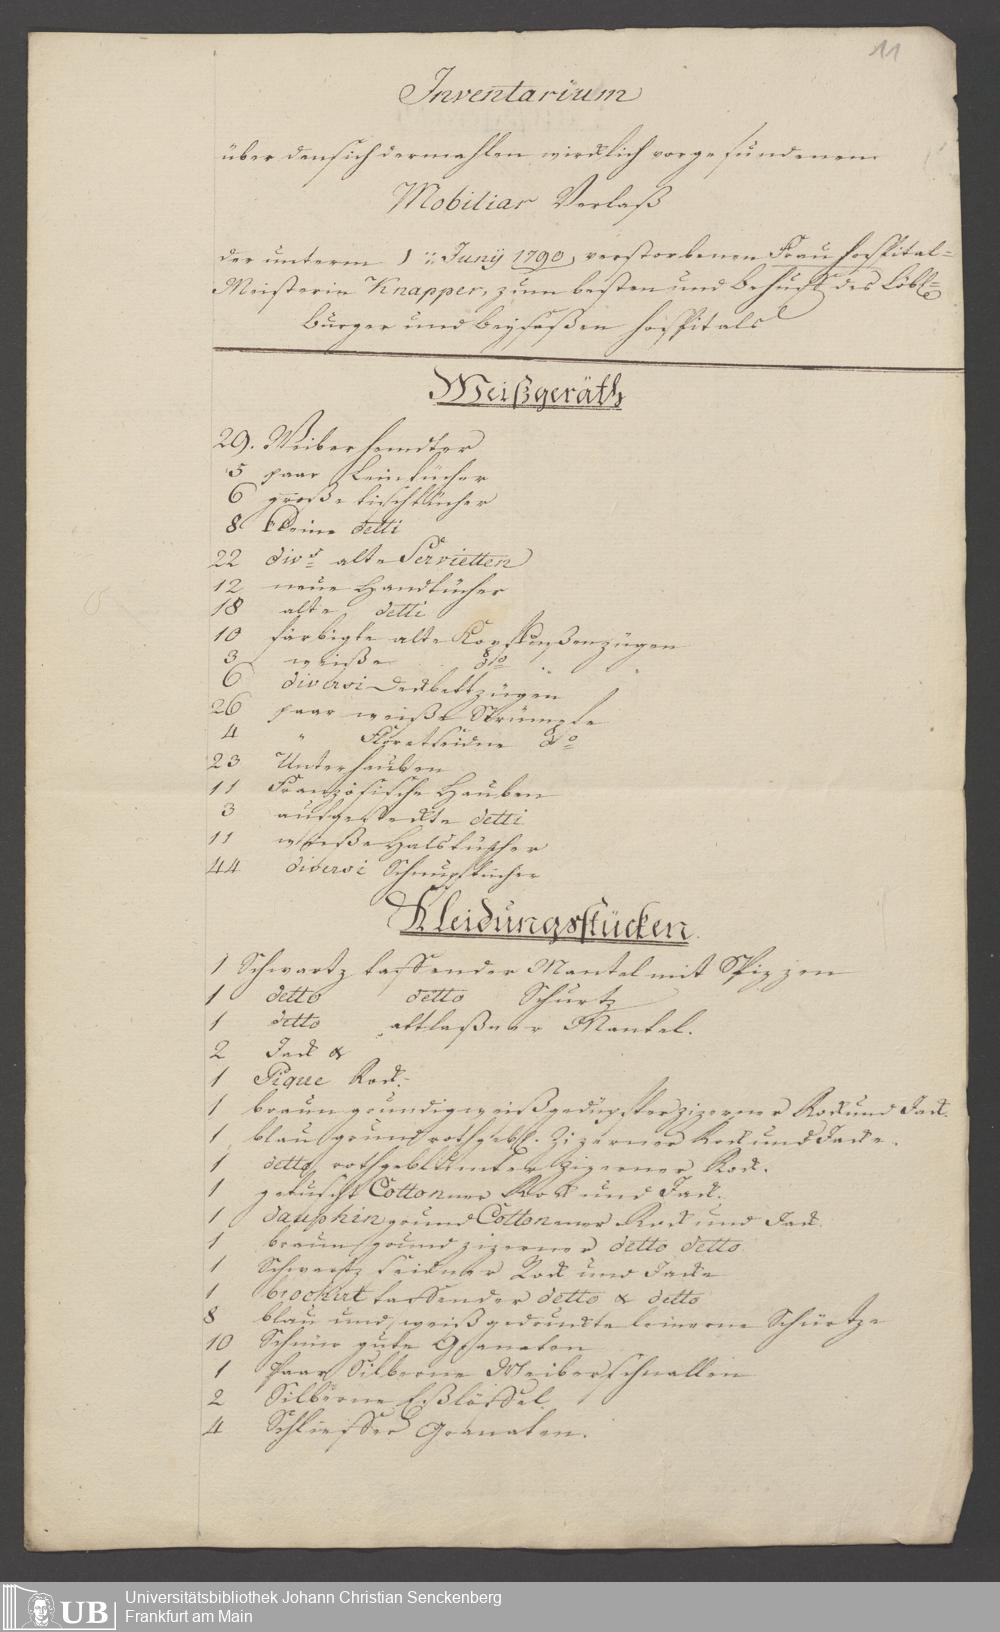 11
Inventarium
über den sich dermahlen wircklich vorgefundenen
Mobiliar Verlaß
der unterm 1ten Junÿ 1790, verstorbenen Frau Hospital=
Meisterin Knapper, zum besten und behuf des Löbl=
Burger und beÿsaßen Hospitals
Weißgeräth
29. Weiberhemdter
5 paar Leintücher
6 große tischtücher
8 kleine detti
22 divs alte Servietten
12 neue Handtücher
18 alte detti
10 färbigte alte Kopfküßenzügen
3 weiße do "
6 diversi Deckbettzügen
26 paar weiße Strümpfe
4 " Floretseidne do
23 Unterhauben
11 Französische Hauben
3 aufgesteckte detti
11 weiße Halstücher
44 diversi Schnupftücher
Kleidungsstücken.
1 Schwartz taffender Mantel mit Spizzen
1 detto detto Schurtz
1 detto attlaßner Mantel.
2 Jack &
1 Pique Rock.
1 braun grundig weiß zizerner Rock und Jack.
1 blau grund roth gebl. Zizerner Rock und Jacke.
1 detto, roth geblümter zizerner Rock.
1 getuscht Cottonner Rock und Jack.
1 dauphin grund Cottonner Rock und Jack.
1 braun grund zizerner detto detto
1 Schwartz seidner Rock und Jacke
1 brochirt taffender detto & detto
8 blau und weiß gedruckte leinerne Schürtze
10 Schnür gute Granaten
1 Paar Silberne Weiberschnallen
2 Silberne Eßlöffel.
4 Schliesser Granaten.
UB
Universitätsbibliothek Johann Christian Senckenberg
Frankfurt am Main